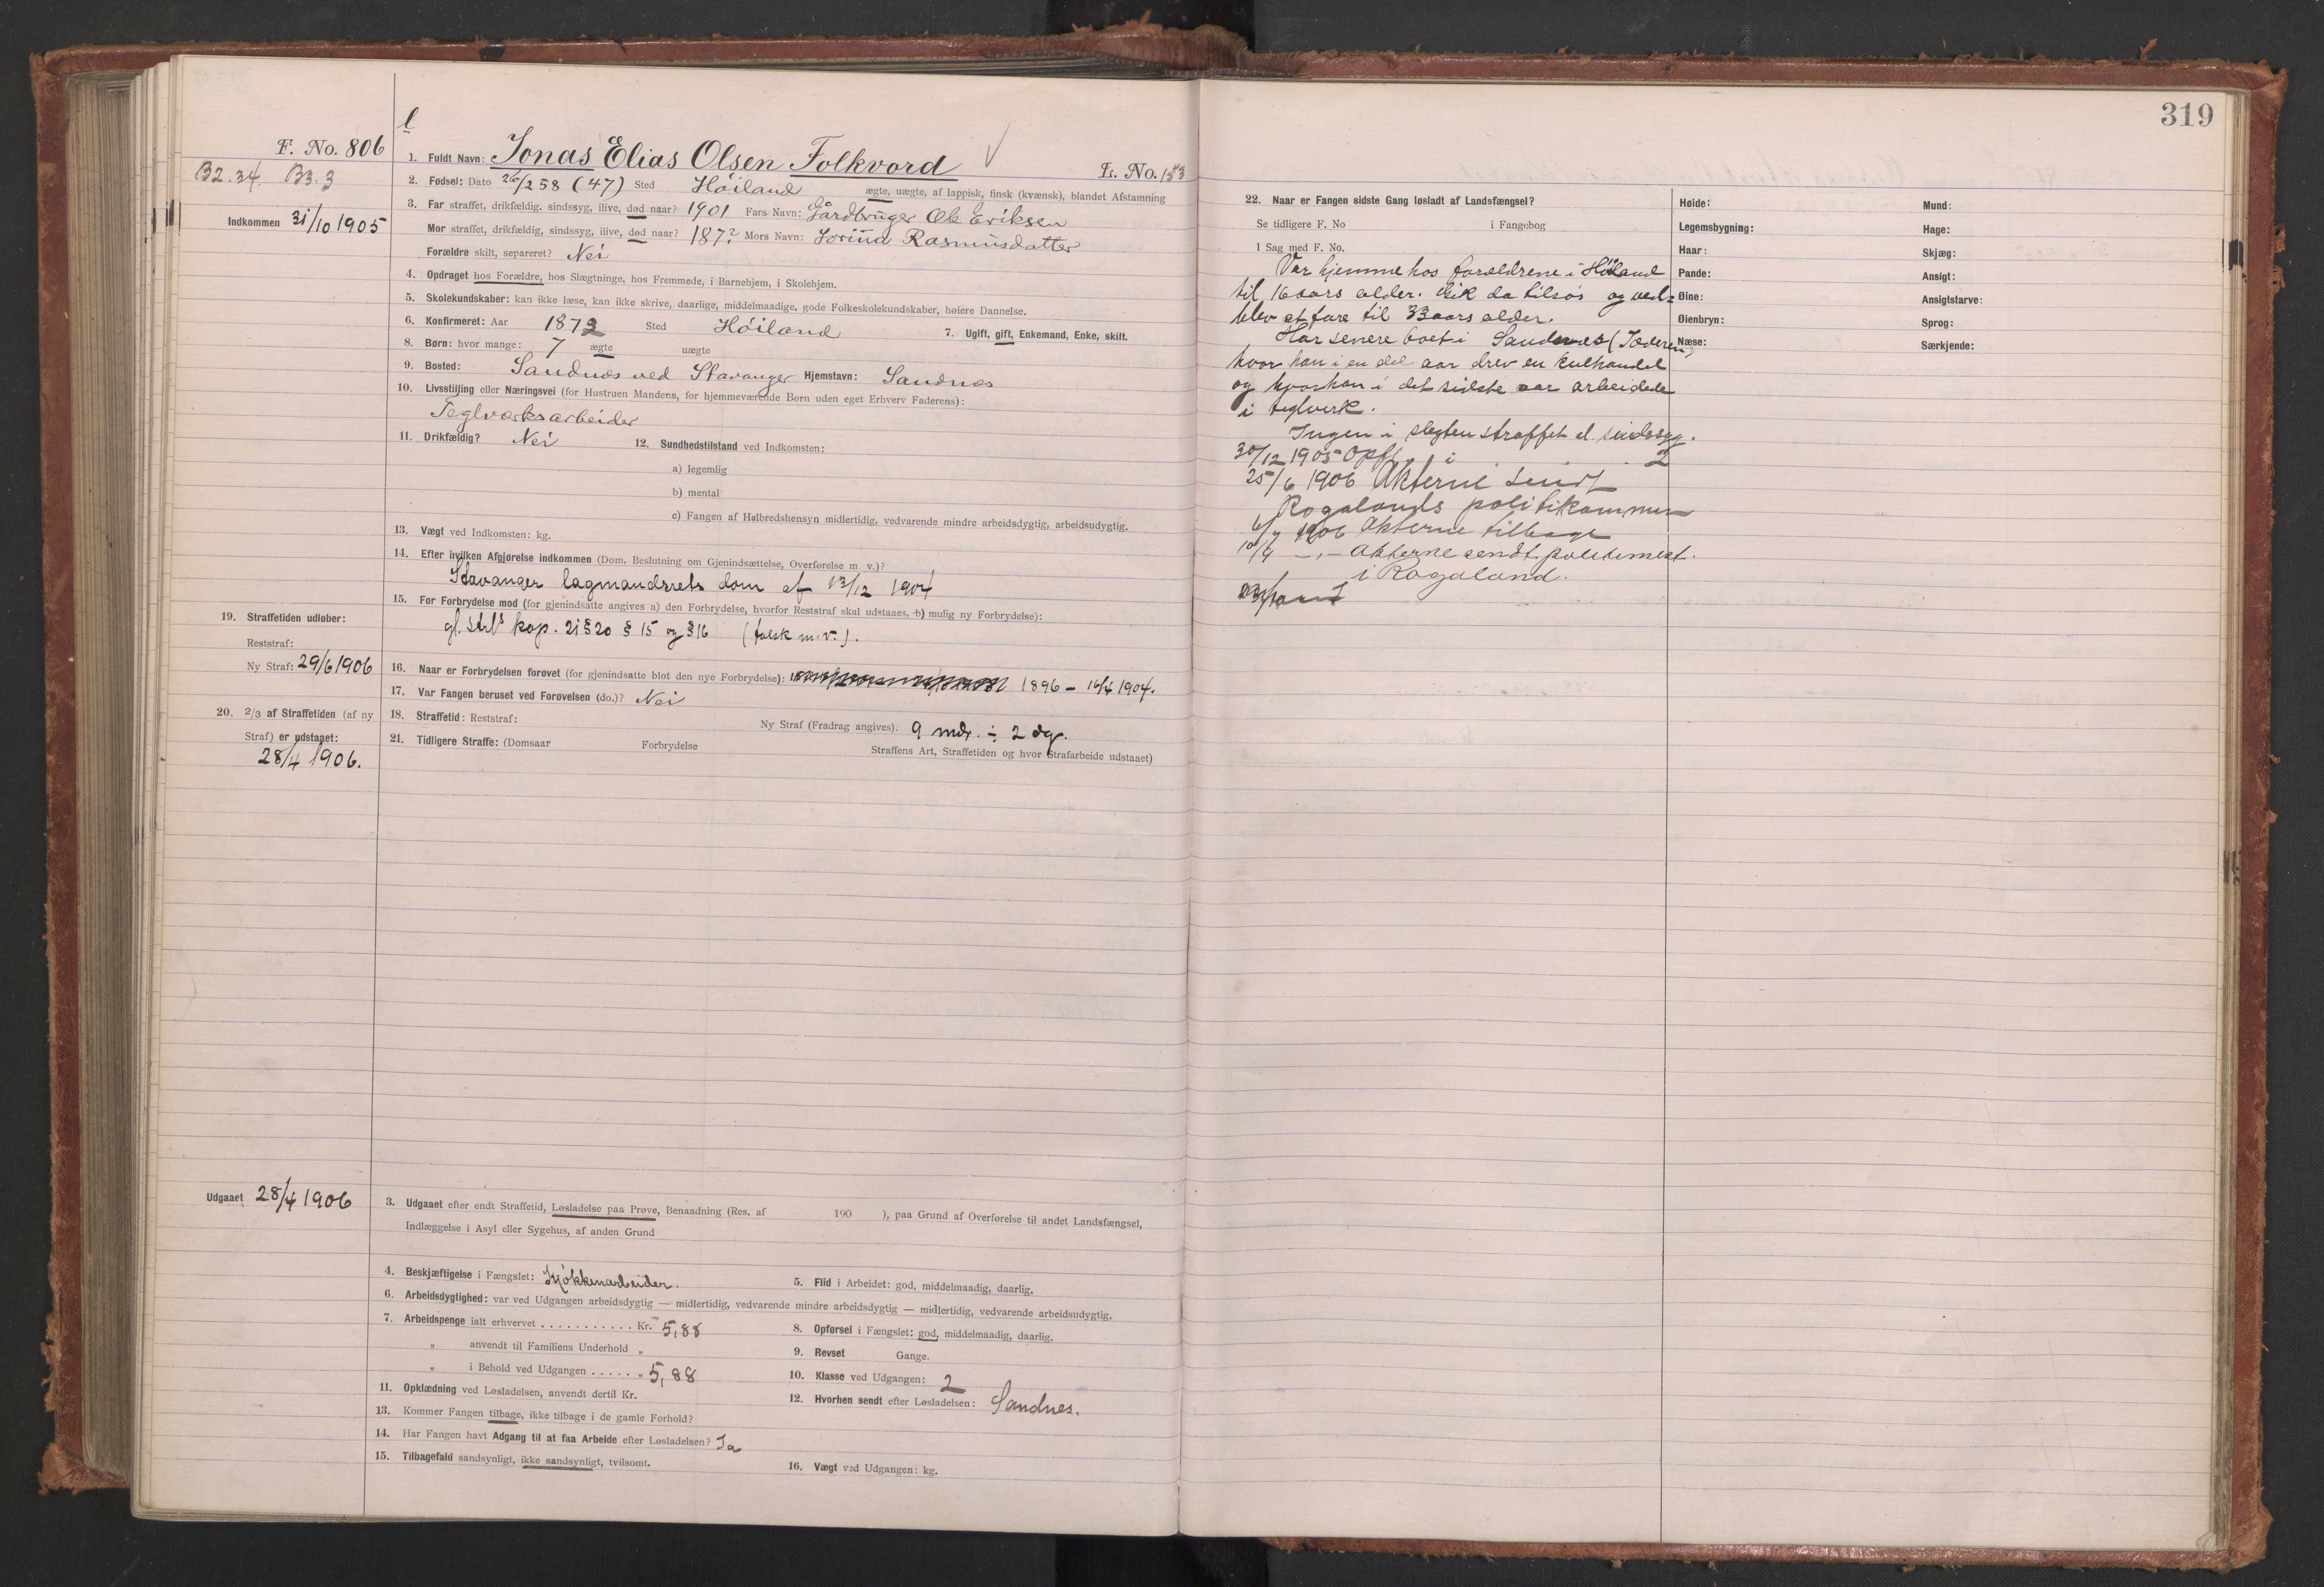 319
l
F. No. 806
B2.34. B3.3
Indkommen 31/10 1905
1. Fuldt Navn: Jonas Elias Olsen Folkvord
L. No. 153
2. Fødsel: Dato 26/2 58 (47) Sted Höiland ægte, uægte, af lappisk, finsk (kvænsk), blandet Afstamning
3. Far straffet, drikfældig, sindssyg, ilive, død naar? 1901 Fars Navn: Gårdbruger Ole Eriksen
Mor straffet, drikfældig, sindssyg, ilive, død naar? 187? Mors Navn: Rasmusdatter
Forældre skilt, separeret? Nei
4. Opdraget hos Forældre, hos Slægtninge, hos Fremmede, i Barnehjem, i Skolehjem.
5. Skolekundskaber: kan ikke læse, kan ikke skrive, daarlige, middelmaadige, gode Folkeskolekundskaber, høiere Dannelse.
6. Konfirmeret: Aar 1873 Sted Höiland 7. Ugift, gift, Enkemand, Enke, skilt.
8. Børn: hvor mange: 7 ægte uægte
9. Bosted: Sandnæs ved Stavanger Hjemstavn: Sandnæs
10. Livsstilling eller Næringsvei (for Hustruen Mandens, for hjemmeværende Børn uden eget Erhverv Faderens):
Teglværksarbeider
11. Drikfældig? Nei 12. Sundhedstilstand ved Indkomsten:
a) legemlig
b) mental
c) Fangen af Helbredshensyn midlertidig, vedvarende mindre arbeidsdygtig, arbeidsudygtig.
13. Vægt ved Indkomsten: kg.
14. Efter hvilken Afgjørelse indkommen (Dom, Beslutning om Gjenindsættelse, Overførelse m. v.)?
Stavanger lagmandsrets dom af 13/12 1904
15. For Forbrydelse mod (for gjenindsatte angives a) den Forbrydelse, hvorfor Reststraf skal udstaaes, b) mulig ny Forbrydelse):
gl. strl's kap. 21 § 20 § 15 og § 16 (falsk m.v.).
19. Straffetiden udløber:
Reststraf:
Ny Straf: 29/6 1906
16. Naar er Forbrydelsen forøvet (for gjenindsatte blot den nye Forbrydelse): 1896 – 16/4 1904.
17. Var Fangen beruset ved Forøvelsen (do.)? Nei
20. 2/3 af Straffetiden (af ny
Straf) er udstaaet:
28/4 1906.
18. Straffetid: Reststraf: Ny Straf (Fradrag angives). 9 mdr. ÷ 2 dg.
21. Tidligere Straffe: (Domsaar Forbrydelse Straffens Art, Straffetiden og hvor Strafarbeide udstaaet)
Udgaaet 28/4 1906
3. Udgaaet efter endt Straffetid, Løsladelse paa Prøve, Benaadning (Res. af 190 ), paa Grund af Overførelse til andet Landsfængsel,
Indlæggelse i Asyl eller Sygehus, af anden Grund
4. Beskjæftigelse i Fængslet: Kjøkkenarbeider.
5. Flid i Arbeidet: god, middelmaadig, daarlig.
6. Arbeidsdygtighed: var ved Udgangen arbeidsdygtig — midlertidig, vedvarende mindre arbeidsdygtig — midlertidig, vedvarende arbeidsudygtig.
7. Arbeidspenge ialt erhvervet . . . . . . . . . . . Kr. 5,88
8. Opførsel i Fængslet: god, middelmaadig, daarlig.
" anvendt til Familiens Underhold "
9. Revset Gange.
" i Behold ved Udgangen . . . . . . " 5,88
10. Klasse ved Udgangen: 2
11. Opklædning ved Løsladelsen, anvendt dertil Kr.
12. Hvorhen sendt efter Løsladelsen: Sandnes.
13. Kommer Fangen tilbage, ikke tilbage i de gamle Forhold?
14. Har Fangen havt Adgang til at faa Arbeide efter Løsladelsen? Ja
15. Tilbagefald sandsynligt, ikke sandsynligt, tvilsomt.
16. Vægt ved Udgangen: kg.
22. Naar er Fangen sidste Gang løsladt af Landsfængsel?
Se tidligere F. No i Fangebog
I Sag med F. No.
Var hjemme hos forældrene i Höiland
til 16 aars alder. Gik da tilsøs og ved-
blev at fare til 33 aars alder.
Har senere boet i Sandnæs (Jæderen)
hvor han i en del aar drev en kulhandel
og hvor han i det sidste aar arbeidede
i teglverk.
Ingen i slegten straffet el. sindssyg.
30/12 1905 Opfl. i 2
25/6 1906 Akterne sendt
Rogalands politikammer
6/7 1906 Akterne tilbage
10/7 – „ – Akterne sendt politimest.
i Rogaland.
Høide:
Legemsbygning:
Haar:
Pande:
Øine:
Øienbryn:
Næse:
Mund:
Hage:
Skjæg:
Ansigt:
Ansigtstarve:
Sprog:
Særkjende: